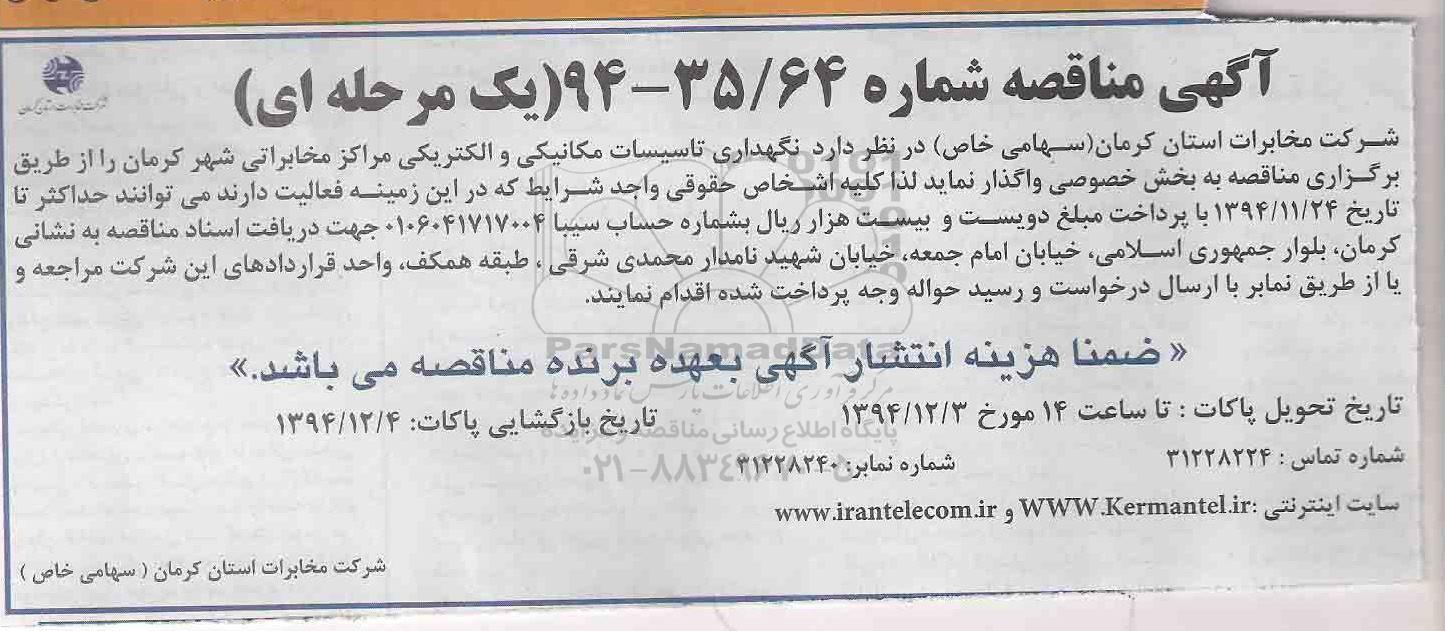 شرکت مخابرات استان کرمان
آگهی مناقصه شماره ۳۵/۶۴–۹۴(یک مرحله ای)
شرکت مخابرات استان کرمان(سهامی خاص) در نظر دارد نگهداری تاسیسات مکانیکی و الکتریکی مراکز مخابراتی شهر کرمان را از طریق
برگزاری مناقصه به بخش خصوصی واگذار نماید لذا کلیه اشخاص حقوقی واجد شرایط که در این زمینه فعالیت دارند می توانند حداکثر تا
تاریخ ۱۳۹۴/۱۱/۲۴ با پرداخت مبلغ دویست و بیست هزار ریال بشماره حساب سیبا ۰۱۰۶۰۴۱۷۱۷۰۰۴ جهت دریافت اسناد مناقصه به نشانی
کرمان، بلوار جمهوری اسلامی، خیابان امام جمعه، خیابان شهید نامدار محمدی شرقی ، طبقه همکف، واحد قراردادهای این شرکت مراجعه و
یا از طریق نمابر با ارسال درخواست و رسید حواله وجه پرداخت شده اقدام نمایند.
ParsNamadData
« ضمنا هزینه انتشار آگهی بعهده برنده مناقصه می باشد.»
مرکز فرآوری اطلاعات پارس نماد داده ها
تاریخ تحویل پاکات : تا ساعت ۱۴ مورخ ۱۳۹۴/۱۲/۳ تاریخ بازگشایی پاکات: ۱۳۹۴/۱۲/۴
پایگاه اطلاع رسانی مناقصه و مزایده
شماره تماس : ۳۱۲۲۸۲۲۴ شماره نمابر: ۳۱۲۲۸۲۴۰
سایت اینترنتی :WWW.Kermantel.ir و www.irantelecom.ir
شرکت مخابرات استان کرمان ( سهامی خاص )